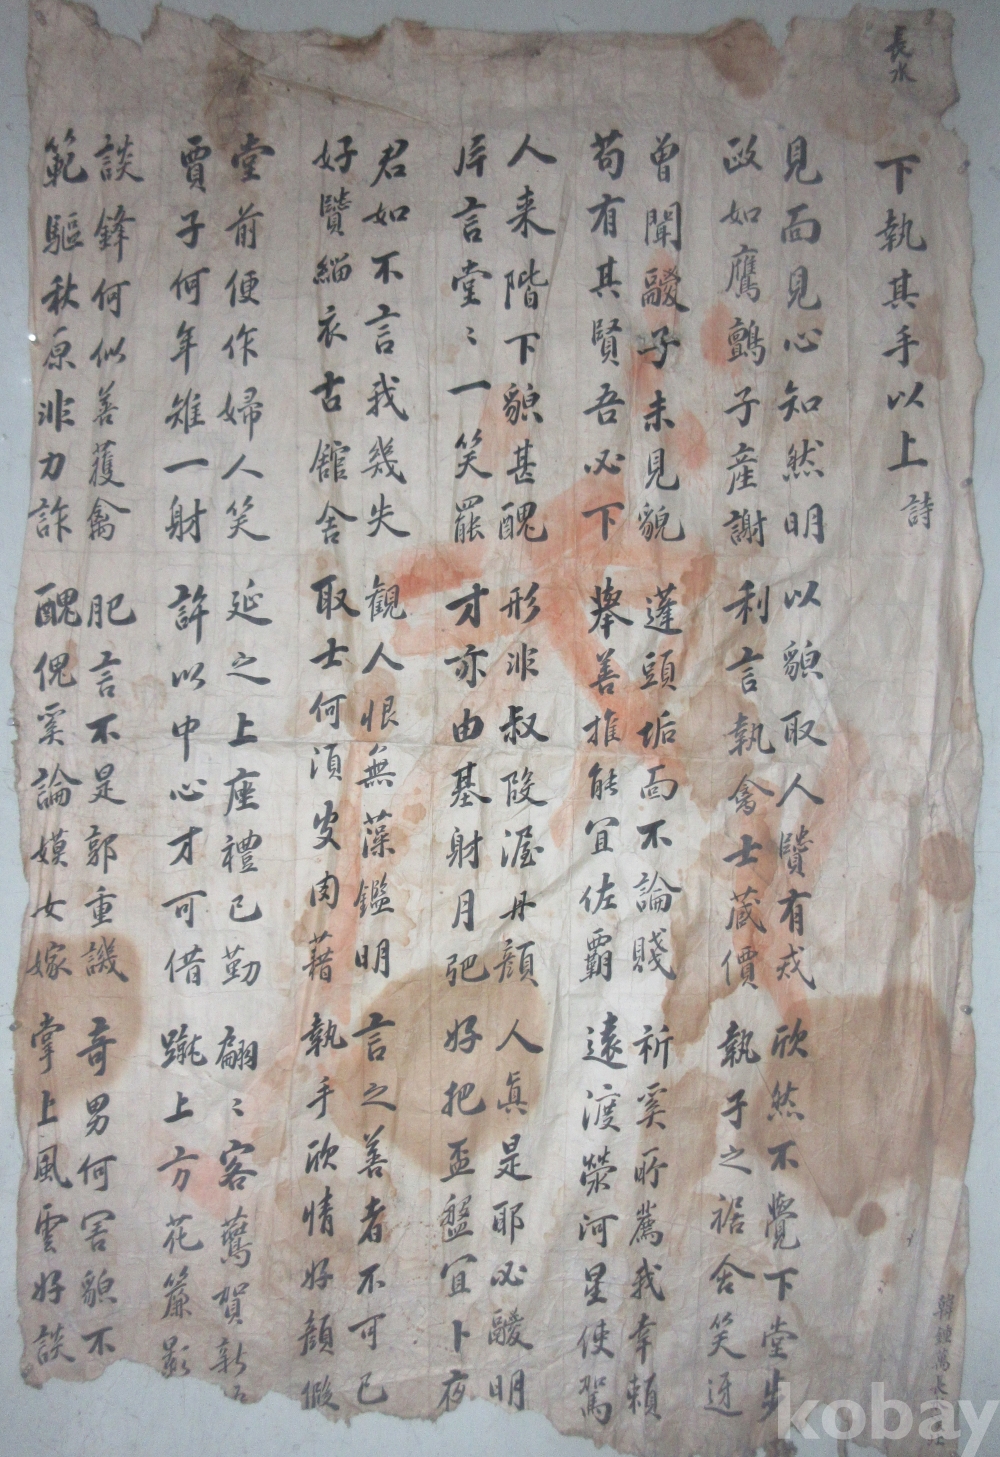 長水
下執其手以上 詩
見面見心知然明 以貌取人贒有戎 欣然不覺下堂步
政如鷹鸇子產謝 利言執禽士蔵價 執子之裾含笑迓
曾聞鬷子未見貌 蓬頭垢面不論賤 祈奚所薦我幸頼
苟有其賢吾必下 擧善推能宜佐覇 遠渡滎河星使駕
人来階下貌甚醜 形非叔段渥丹顔 人眞是耶必鬷明
片言堂〻一笑罷 才亦由基射月弝 好把盃盤宜卜夜
君如不言我幾失 觀人恨無藻鑑明 言之善者不可已
好贒緇衣古舘舍 取士何湏皮肉藉 執手欣情好顔假
堂前便作婦人笑 延之上座禮已勤 翩〻客鷰賀新
賈子何年雉一射 許以中心才可借 蹴上方花簾影
談鋒何似善獲禽 肥言不是郭重譏 奇男何害貌不
範驅秋原非力詐 醜傀奚論嫫女嫁 掌上風雲好談
韓鍾萬長
kobay